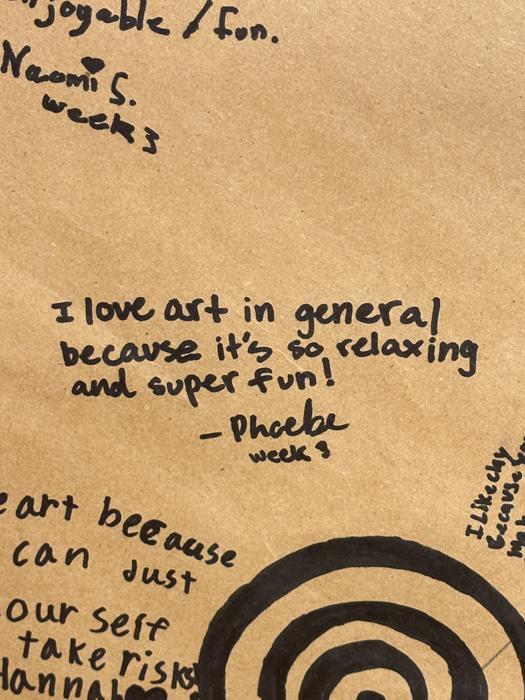 njoyable / fun.
Naomi S.
week 3
I love art in general
because it's so relaxing
and super fun!
- Phoebe
week 3
e art because
can just
our self
take risks
Hannah
I like clay
because